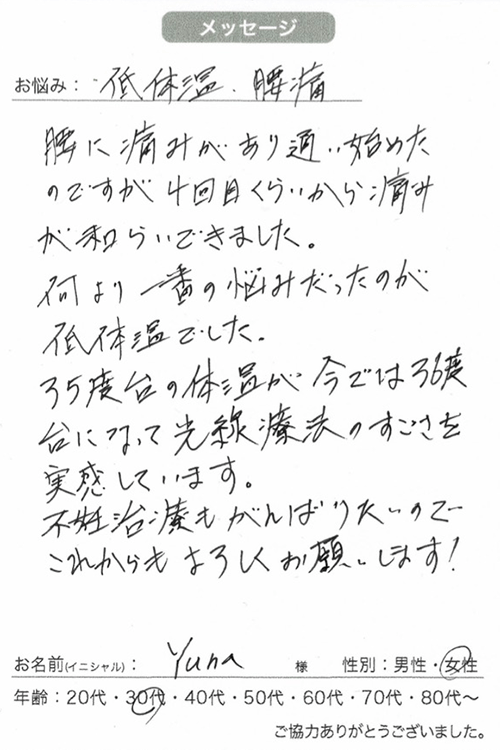 メッセージ
お悩み：低体温、腰痛
腰に痛みがあり通い始めた
のですが 4回目くらいから痛み
が和らいできました。
何より一番の悩みだったのが
低体温でした。
35度台の体温が今では36度
台になって光線療法のすごさを
実感しています。
不妊治療もがんばりたいので
これからもよろしくお願いします！
お名前(イニシャル)：Yuna 様 性別：男性・女性
年齢：20代・30代・40代・50代・60代・70代・80代～
ご協力ありがとうございました。